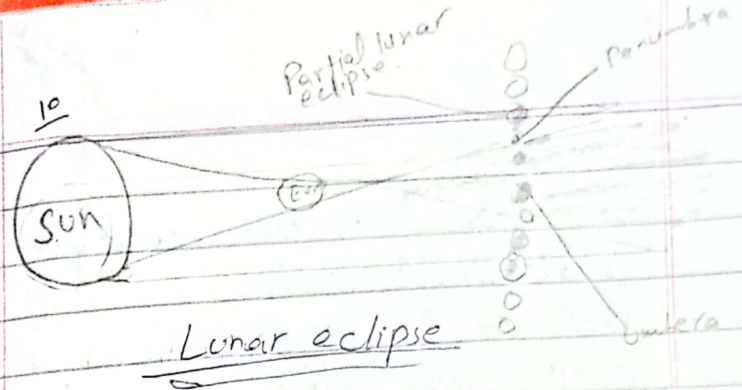 Partial lunar
eclipse
Penumbra
10
Sun
Ear
umbera
Lunar eclipse